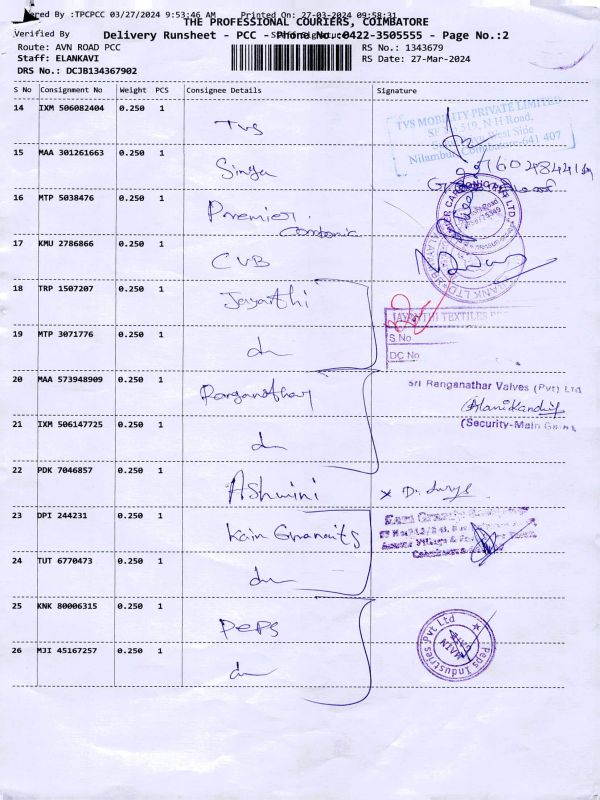 ered By :TPCPCC 03/27/2024 9:53:46 AM Printed On: 27-03-2024 09:58:31
THE PROFESSIONAL COURIERS, COIMBATORE
Verified By
Delivery Runsheet - PCC - Phone No.:0422-3505555 - Page No.:2
Route: AVN ROAD PCC
RS No.: 1343679
Staff: ELANKAVI
RS Date: 27-Mar-2024
DRS No.: DCJB134367902
S No Consignment No Weight PCS Consignee Details Signature
14 IXM 506082404 0.250 1 TVS
TVS MOBILITY PRIVATE LIMITED
N H Road,
West Side
641 407
15 MAA 301261663 0.250 1 Singa
16 MTP 5038476 0.250 1 Premier
17 KMU 2786866 0.250 1 CUB
18 TRP 1507207 0.250 1 Jayanthi
JAYANTHI TEXTILES
S No
DC No
19 MTP 3071776 0.250 1 do
20 MAA 573948909 0.250 1 Ranganathar
Sri Ranganathar Valves (Pvt) Ltd
Manikandan
(Security-Main
21 IXM 506147725 0.250 1 do
22 PDK 7046857 0.250 1 Ashwini
23 DPI 244231 0.250 1
24 TUT 6770473 0.250 1 do
25 KNK 80006315 0.250 1 PePS
Peps Industries Pvt Ltd
MAIN
26 MJI 45167257 0.250 1 do